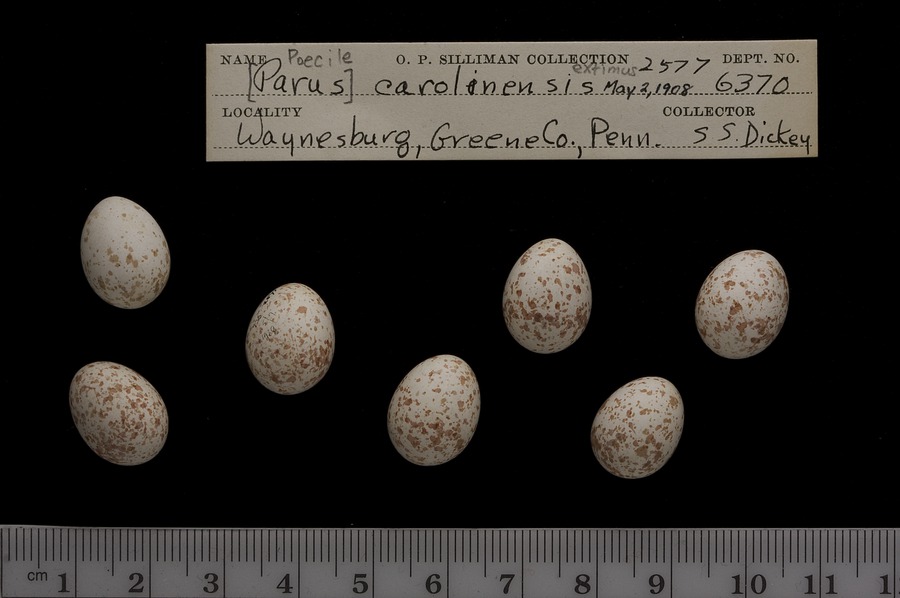 NAME Poecile O. P. SILLIMAN COLLECTION DEPT. NO.
[Parus] carolinensis extimus May 3, 1908 2577 6370
LOCALITY COLLECTOR
Waynesburg, Greene Co., Penn. S S. Dickey
cm 1 2 3 4 5 6 7 8 9 10 11 1